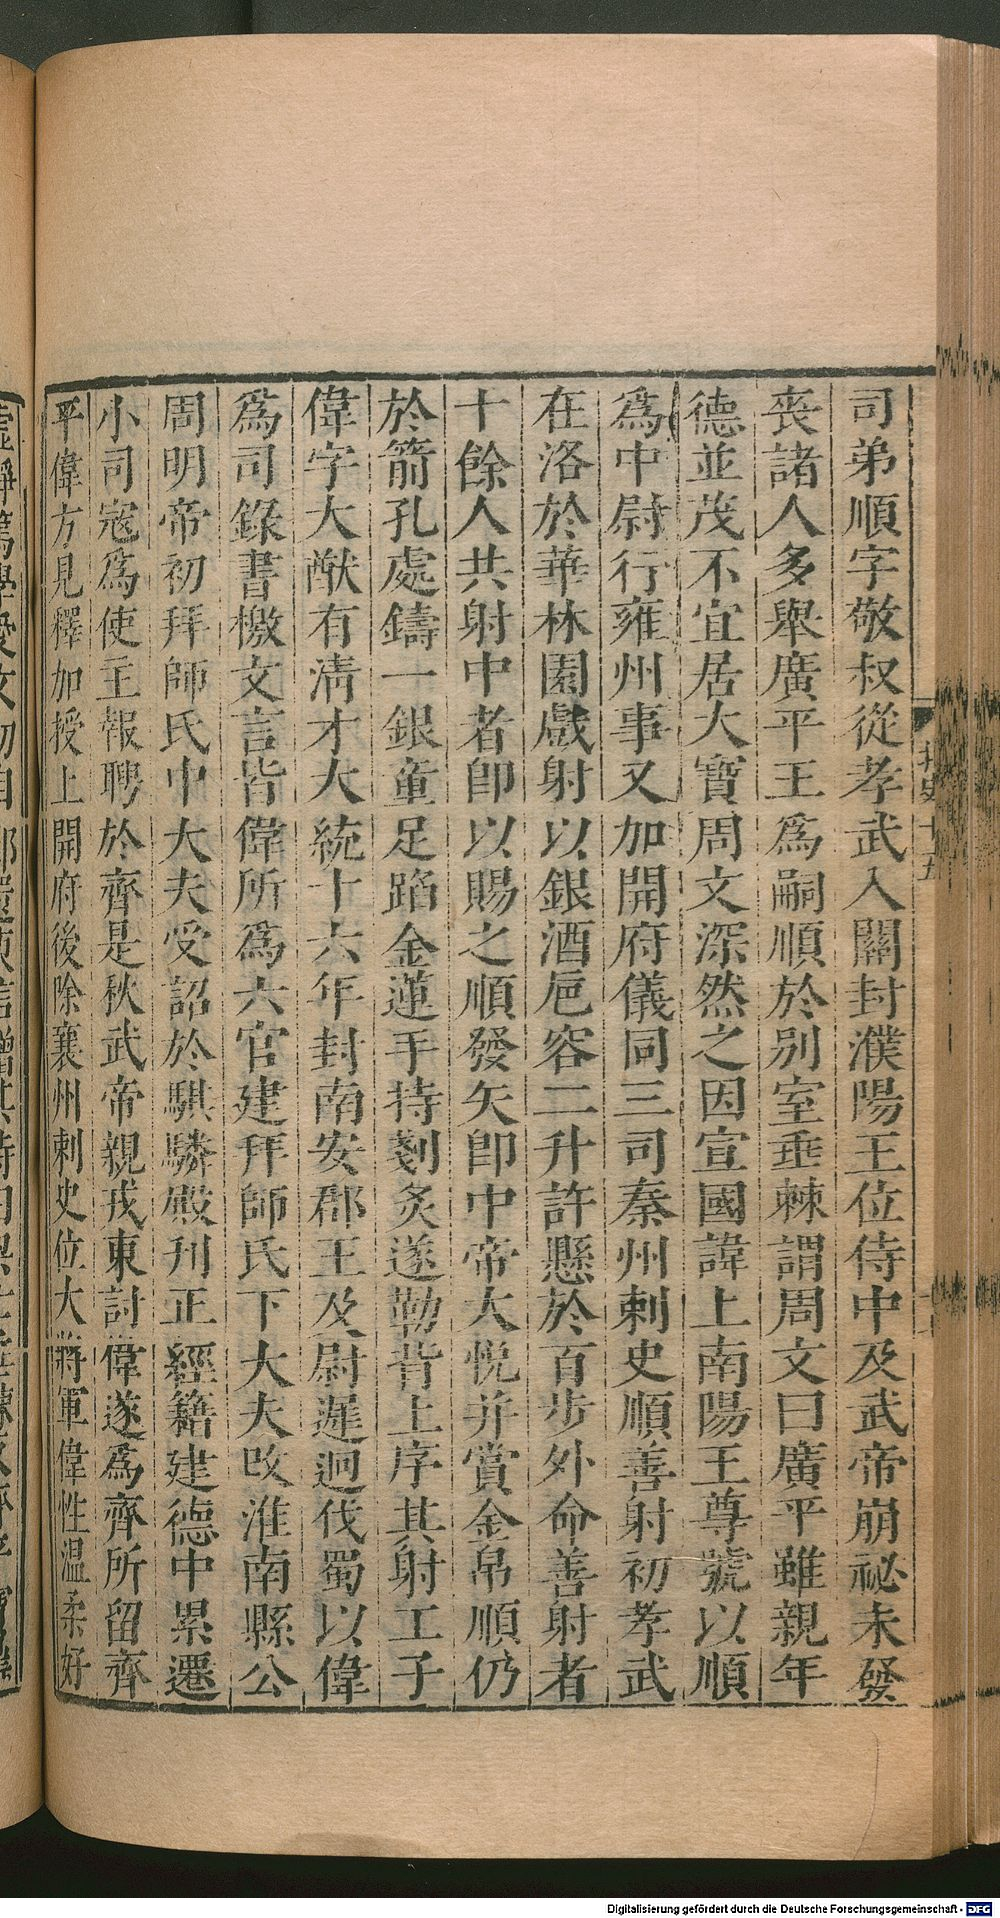 司弟順字敬叔從孝武入關封濮陽王位侍中及武帝崩祕未發
喪諸人多舉廣平王爲嗣順於別室垂棘謂周文曰廣平雖親年
德並茂不宜居大寶周文深然之因宣國諱上南陽王尊號以順
爲中尉行雍州事又加開府儀同三司秦州剌史順善射初孝武
在洛於華林園戲射以銀酒巵容二升許懸於百步外命善射者
十餘人共射中者卽以賜之順發矢卽中帝大悅并賞金帛順仍
於箭孔處鑄一銀童足蹈金蓮手持剗炙遂勒背上序其射工子
偉字大猷有淸才大統十六年封南安郡王及尉遲迥伐蜀以偉
爲司錄書檄文言皆偉所爲六官建拜師氏下大夫改淮南縣公
周明帝初拜師氏中大夫受詔於騏驎殿刊正經籍建德中累遷
小司寇爲使主報聘於齊是秋武帝親戎東討偉遂爲齊所留齊
平偉方見釋加授上開府後除襄州剌史位大將軍偉性温柔好
Digitalisierung gefördert durch die Deutsche Forschungsgemeinschaft - DFG